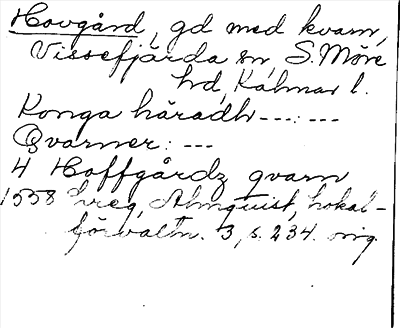 Hovgård, gd med kvarn,
Vissefjärda sn, S. Möre
hd, Kalmar l.
Konga häradh ---:---
Qvarner: ---
4 Hoffgårdz qvarn
1558 Zreg, Almquist, Lokal-
förvaltn. 3, s. 234. orig.